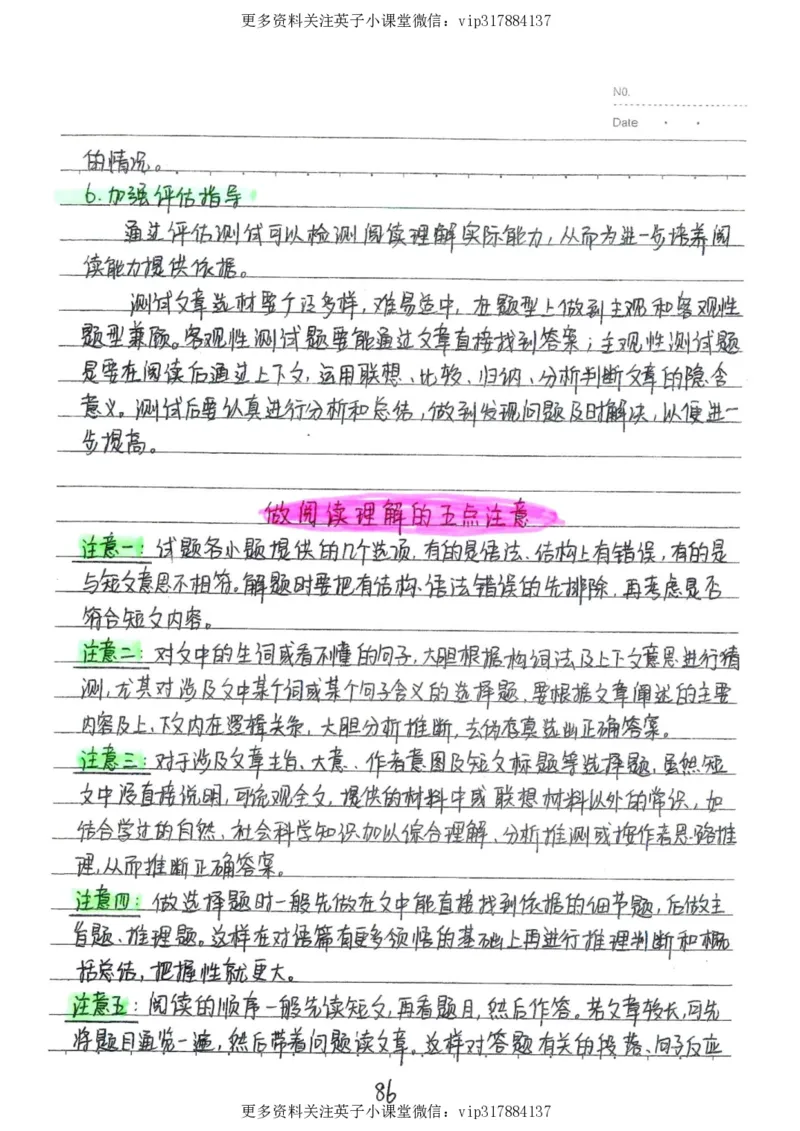 更多资料关注英子小课堂微信：vip317884137
NO.
Date
的情况。
6.加强评估指导
通过评估测试可以检测阅读理解实际能力，从而为进一步培养阅
读能力提供依据。
测试文章选材要广泛多样，难易适中，在题型上做到主观和客观性
题型兼顾。客观性测试题要能通过文章直接找到答案；主观性测试题
是要在阅读后通过上下文，运用联想、比较、归纳、分析判断文章的隐含
意义。测试后要认真进行分析和总结，做到发现问题及时解决，以便进一
步提高。
做阅读理解的五点注意
注意一：试题各小题提供的几个选项，有的是语法、结构上有错误，有的是
与短文意思不相符。解题时要把有结构、语法错误的先排除，再考虑是否
符合短文内容。
注意二：对文中的生词或看不懂的句子，大胆根据构词法及上下文意思进行猜
测，尤其对涉及文中某个词或某个句子含义的选择题，要根据文章阐述的主要
内容及上、下文内在逻辑关系，大胆分析推断，去伪存真选出正确答案。
注意三：对于涉及文章主旨、大意、作者意图及短文标题等选择题，虽然短
文中没直接说明，可统观全文，提供的材料中或联想材料以外的常识，如
结合学过的自然、社会科学知识加以综合理解、分析推测或按作者思路推
理，从而推断正确答案。
注意四：做选择题时一般先做在文中能直接找到依据的细节题，后做主
旨题、推理题。这样在对语篇有更多领悟的基础上再进行推理判断和概
括总结，把握性就更大。
注意五：阅读的顺序一般先读短文，再看题目，然后作答。若文章较长，可先
将题目通览一遍，然后带着问题读文章。这样对答题有关的段落、句子反应
86
更多资料关注英子小课堂微信：vip317884137